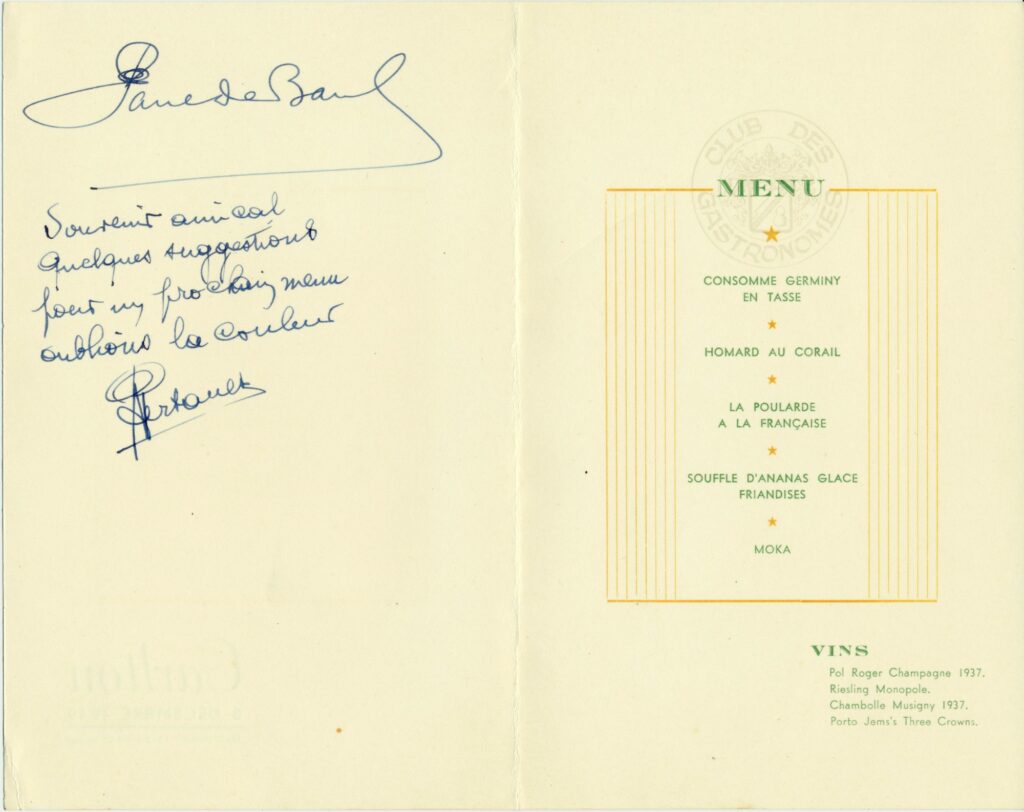 Souvenir amical
Quelques suggestions
pour un prochain menu
oublions la couleur
CLUB DES
GASTRONOMES
MENU
CONSOMME GERMINY
EN TASSE
HOMARD AU CORAIL
LA POULARDE
A LA FRANÇAISE
SOUFFLE D'ANANAS GLACE
FRIANDISES
MOKA
VINS
Pol Roger Champagne 1937.
Riesling Monopole.
Chambolle Musigny 1937.
Porto Jems's Three Crowns.
Carlton